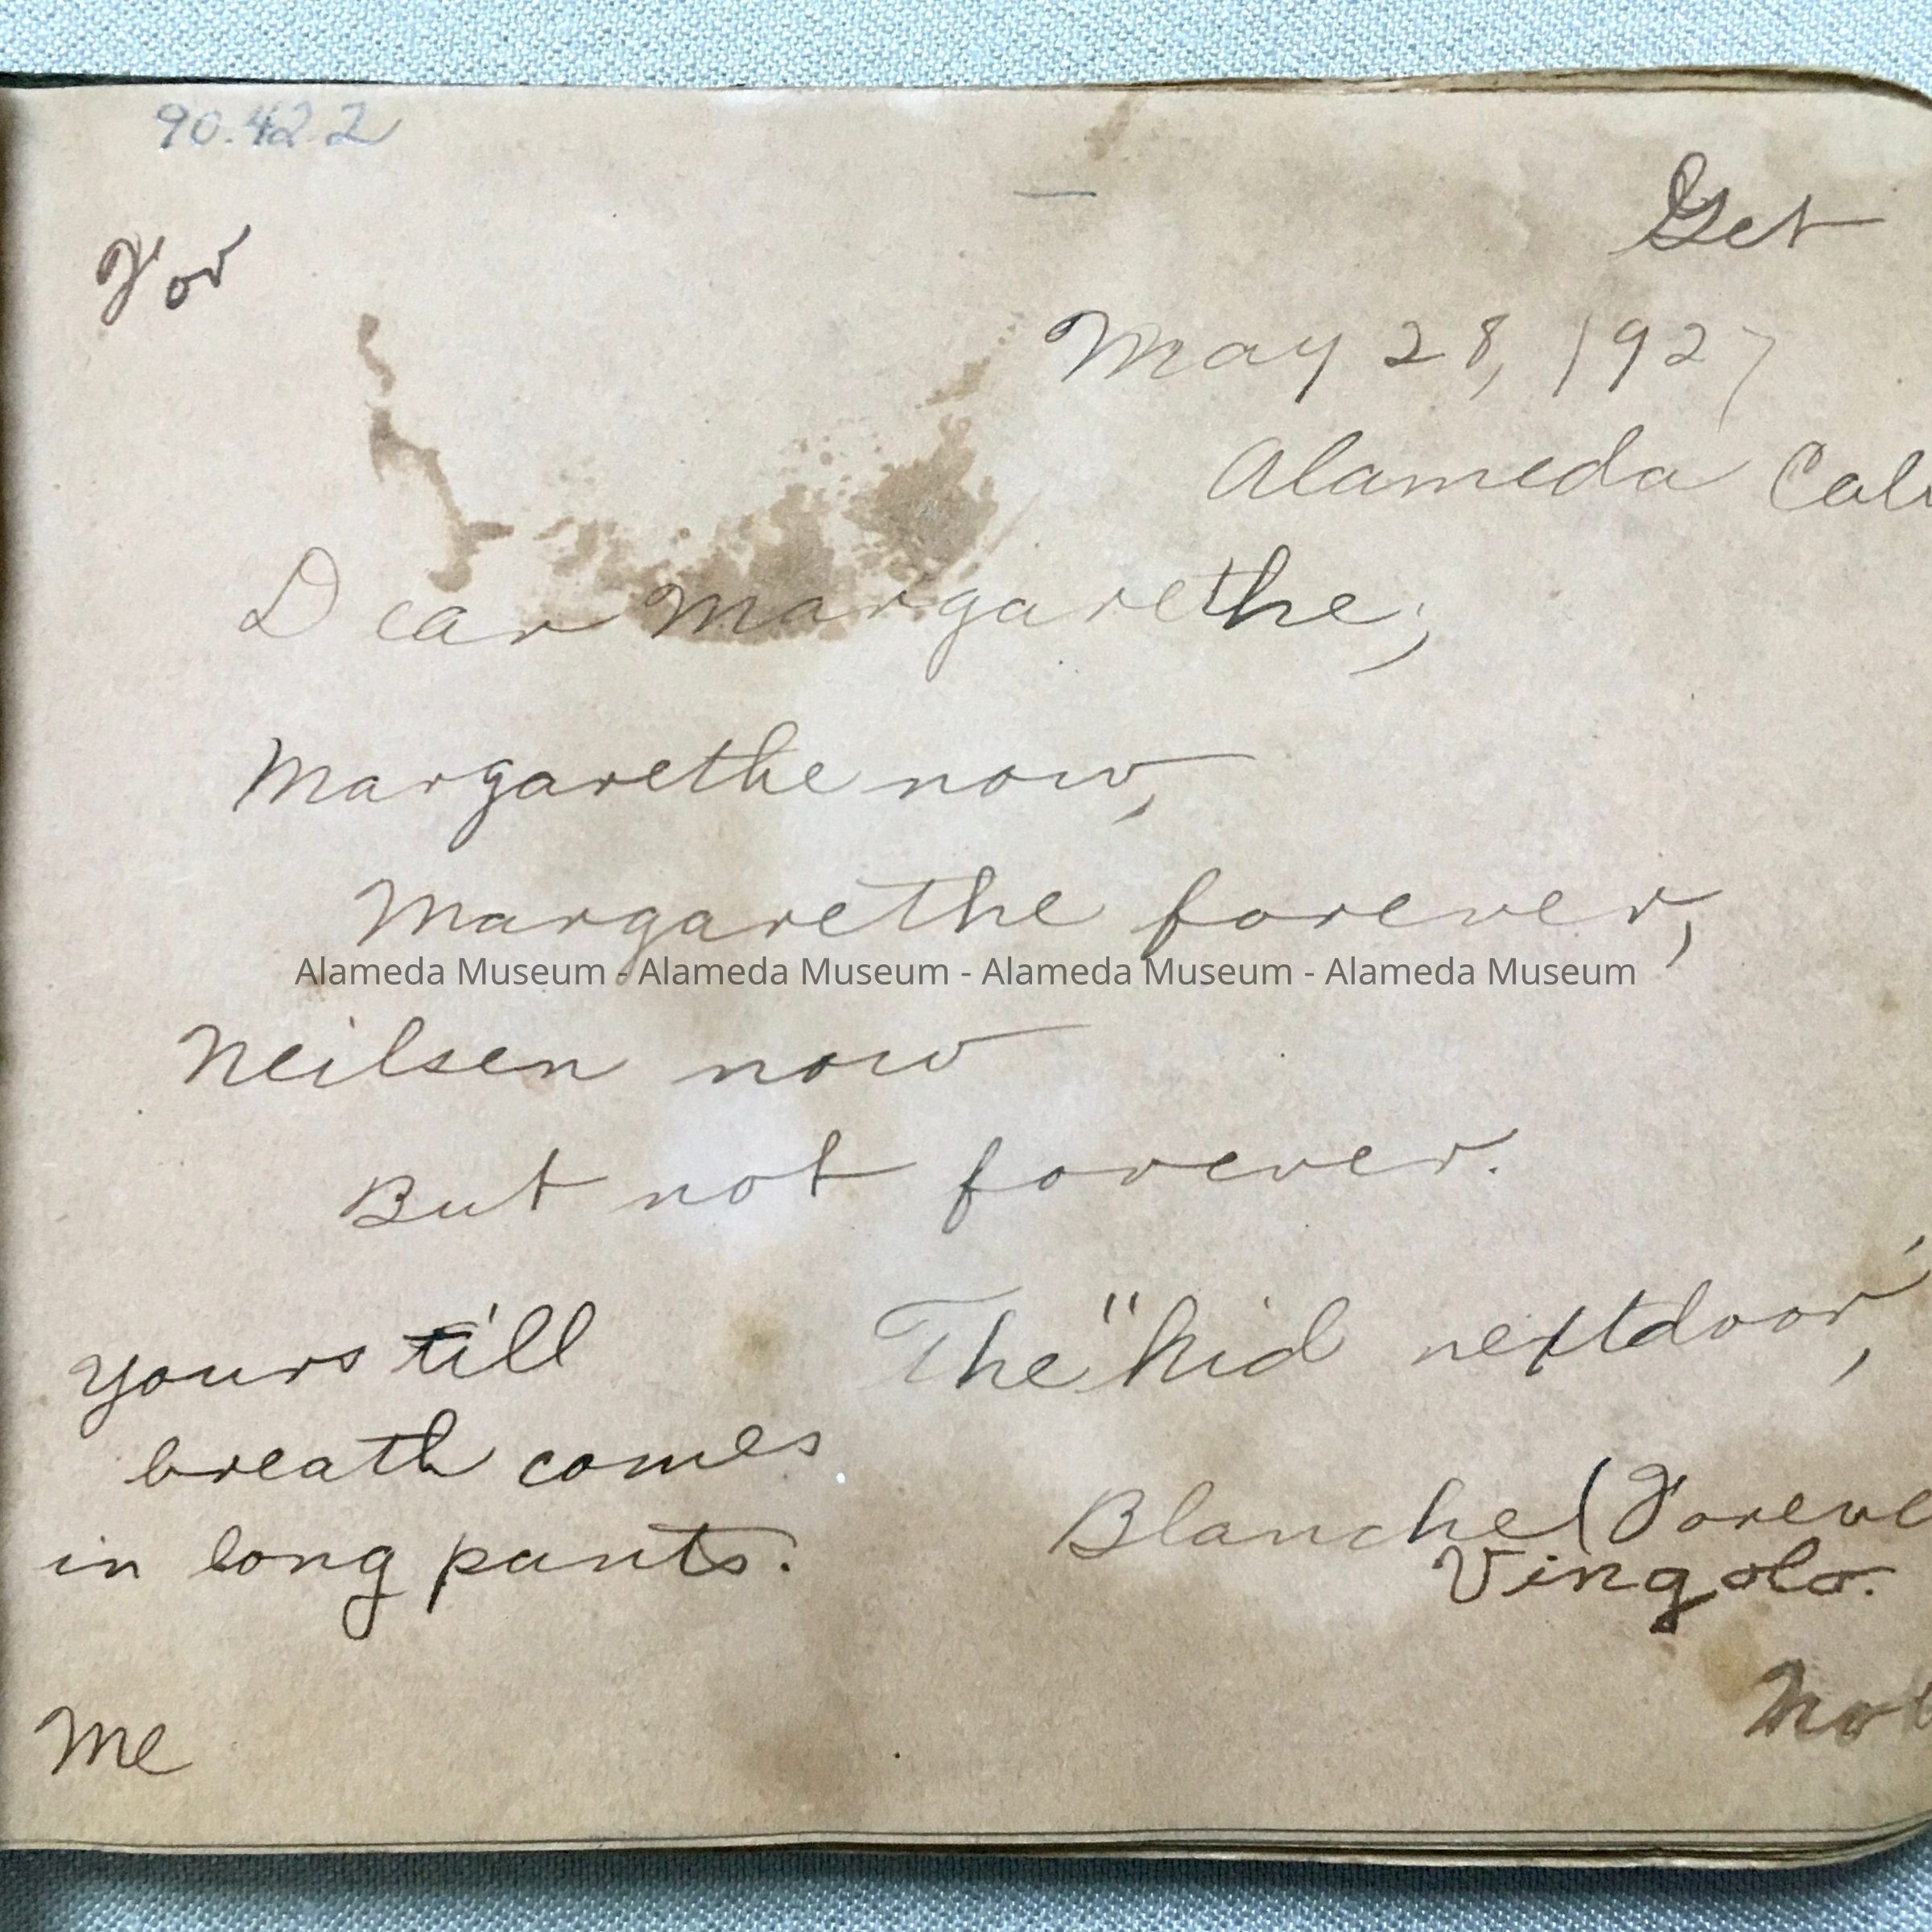 90.42.2
For
Get
May 28, 1927
Alameda Cali
Dear Margarethe,
Margarethe now,
Margarethe forever,
Alameda Museum - Alameda Museum - Alameda Museum - Alameda Museum
Neilsen now
But not forever.
yours till
breath comes
in long pants.
The "kid nextdoor",
Blanche (Foreve
Vingolo.
Me
Not